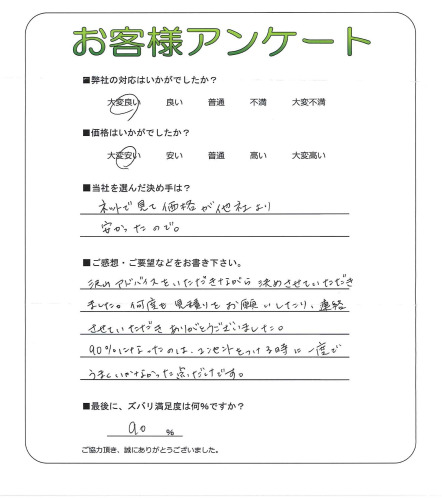 お客様アンケート
■弊社の対応はいかがでしたか?
大変良い 良い 普通 不満 大変不満
■価格はいかがでしたか?
大変安い 安い 普通 高い 大変高い
■当社を選んだ決め手は?
ネットで見て価格が他社より
安かったので。
■ご感想・ご要望などをお書き下さい。
決めアドバイスをいただきながら決めさせていただき
ました。何度も見積りをお願いしたり、連絡
させていただきありがとうございました。
90%になったのは、コンセントをつける時に一度で
うまくいかなかった点だけです。
■最後に、ズバリ満足度は何%ですか?
90 %
ご協力頂き、誠にありがとうございました。